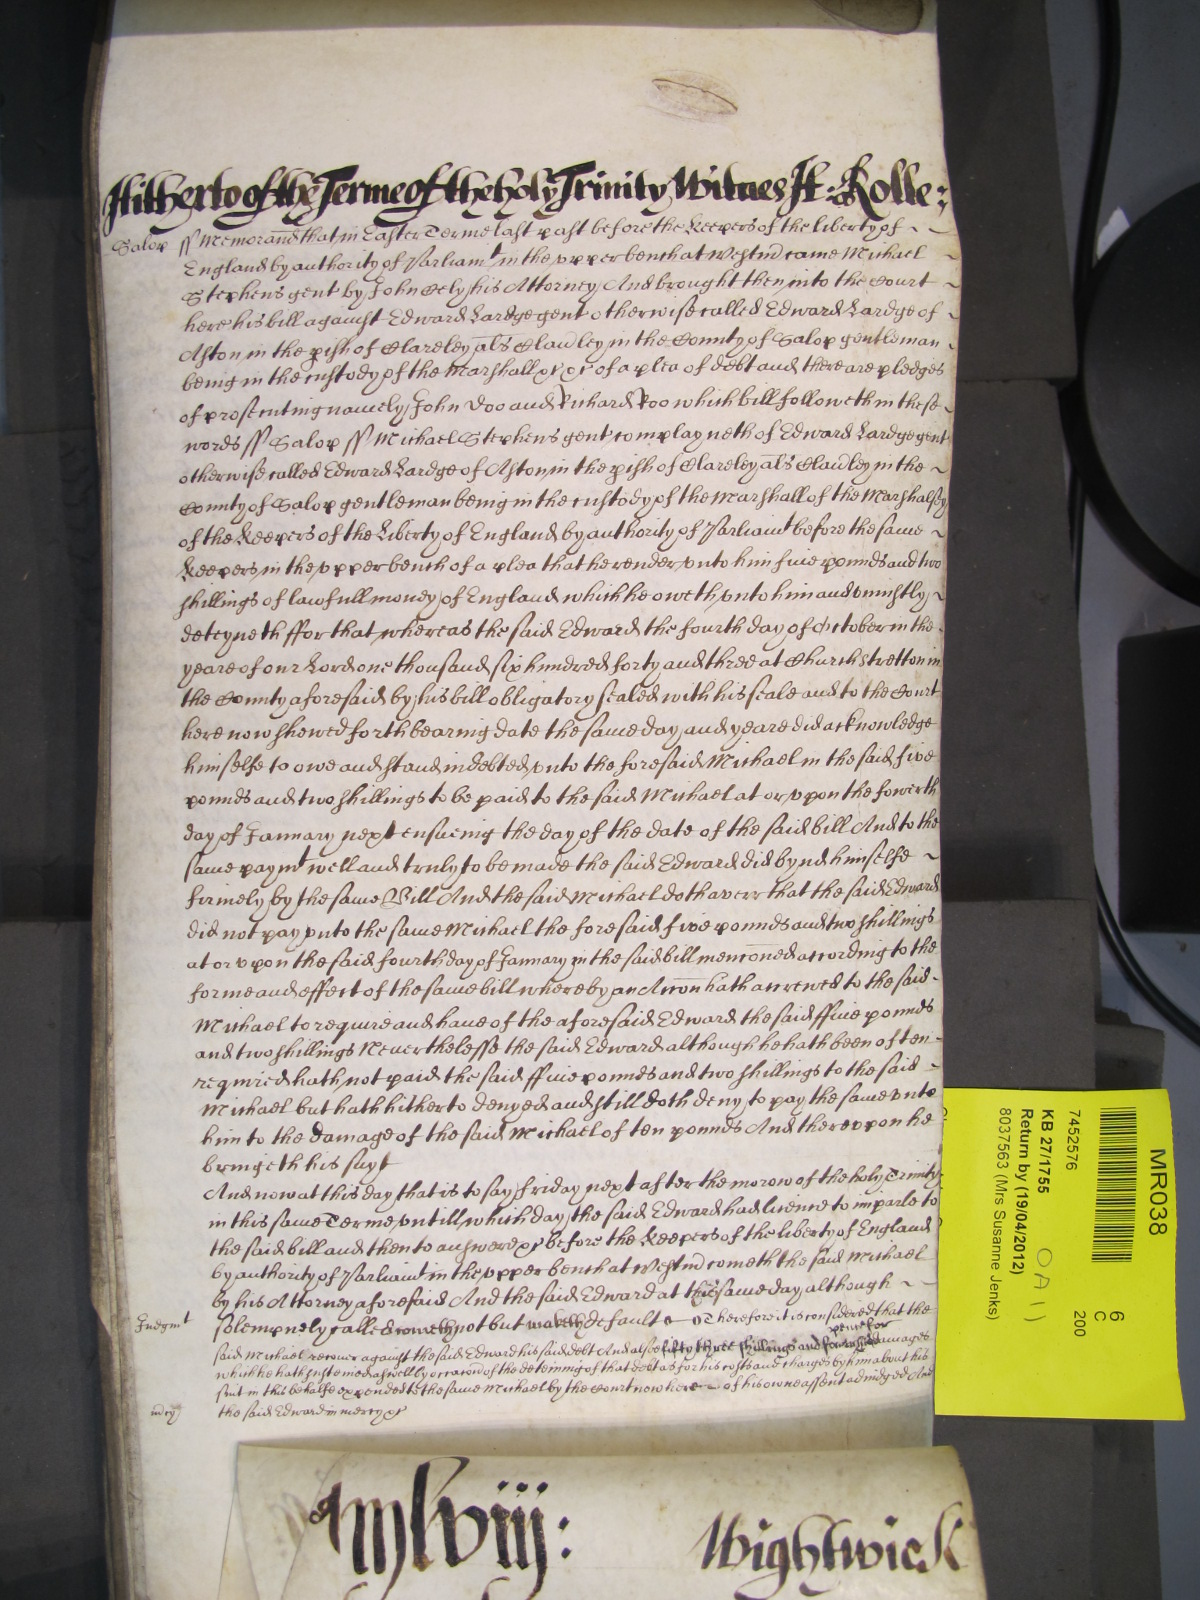 Hitherto of the Terme of the holy Trinity Witnes H: Rolle:
Salop ss Memorand that in Easter Terme last past before the Keepers of the liberty of
England by authority of Parliamt in the upper bench at Westm̄ came Michael
Stephens gent by John Cely his Attorney And brought then into the Court
here his bill against Edward Lardge gent otherwise called Edward Lardge of
Aston in the pish of Clareley als Clawley in the County of Salop gentleman
being in the custody of the Marshall &c of a plea of debt and there are pledges
of prosecuting namely John Doo and Richard Roo which bill followeth in these
words ss Salop ss Michael Stephens gent complayneth of Edward Lardge gent
otherwise called Edward Lardge of Aston in the pish of Clareley als Clawley in the
County of Salop gentleman being in the custody of the Marshall of the Marshalsey
of the Keepers of the Liberty of England by authority of Parliamt before the same
Keepers in the upper bench of a plea that he render unto him five pounds and two
shillings of lawfull money of England which he oweth unto him and uniustly
deteyneth ffor that whereas the said Edward the fourth day of October in the
yeare of our Lord one thousand six hundred forty and three at Church Stretton in
the County aforesaid by his bill obligatory sealed with his seale and to the Court
here now shewed forth bearing date the same day and yeare did acknowledge
himselfe to owe and stand indebted unto the foresaid Michael in the said five
pounds and two shillings to be paid to the said Michael at or upon the fowerth
day of January next ensueing the day of the date of the said bill And to the
same paymt well and truly to be made the said Edward did bynd himselfe
firmely by the same Bill And the said Michael doth averr that the said Edward
did not pay unto the same Michael the foresaid five pounds and two shillings
at or upon the said fourth day of January in the said bill menc̄oned according to the
forme and effect of the same bill whereby an Acc̄on hath accrewed to the said
Michael to require and have of the aforesaid Edward the said ffive pounds
and two shillings Neverthelesse the said Edward although he hath been often
required hath not paid the said ffive pounds and two shillings to the said
Michael but hath hitherto denyed and still doth deny to pay the same unto
him to the damage of the said Michael of ten pounds And thereupon he
bringeth his suyt
And now at this day that is to say Friday next after the morow of the holy Trinity
in this same Terme untill which day the said Edward had licence to imparle to
the said bill and then to answere &c before the Keepers of the liberty of England
by authority of Parliamt in the upper bench at Westm̄ cometh the said Michael
by his Attorney aforesaid And the said Edward at the same day although
Judgmt solempnely called cometh not but maketh default Therefore it is considered that the
said Michael recover against the said Edward his said debt And also fifty three shillings and pence for damages
which he hath susteined aswell by occac̄on of the deteining of that debt as for his costs and charges by him about his
suit in this behalfe expended to the same Michael by the Court now here of his owne assent adiudged And
mcy the said Edward in mercy &c
mlviij:
Wightwick
MR038
6
C
200
7452576
KB 27/1755
Return by (19/04/2012)
8037563 (Mrs Susanne Jenks)